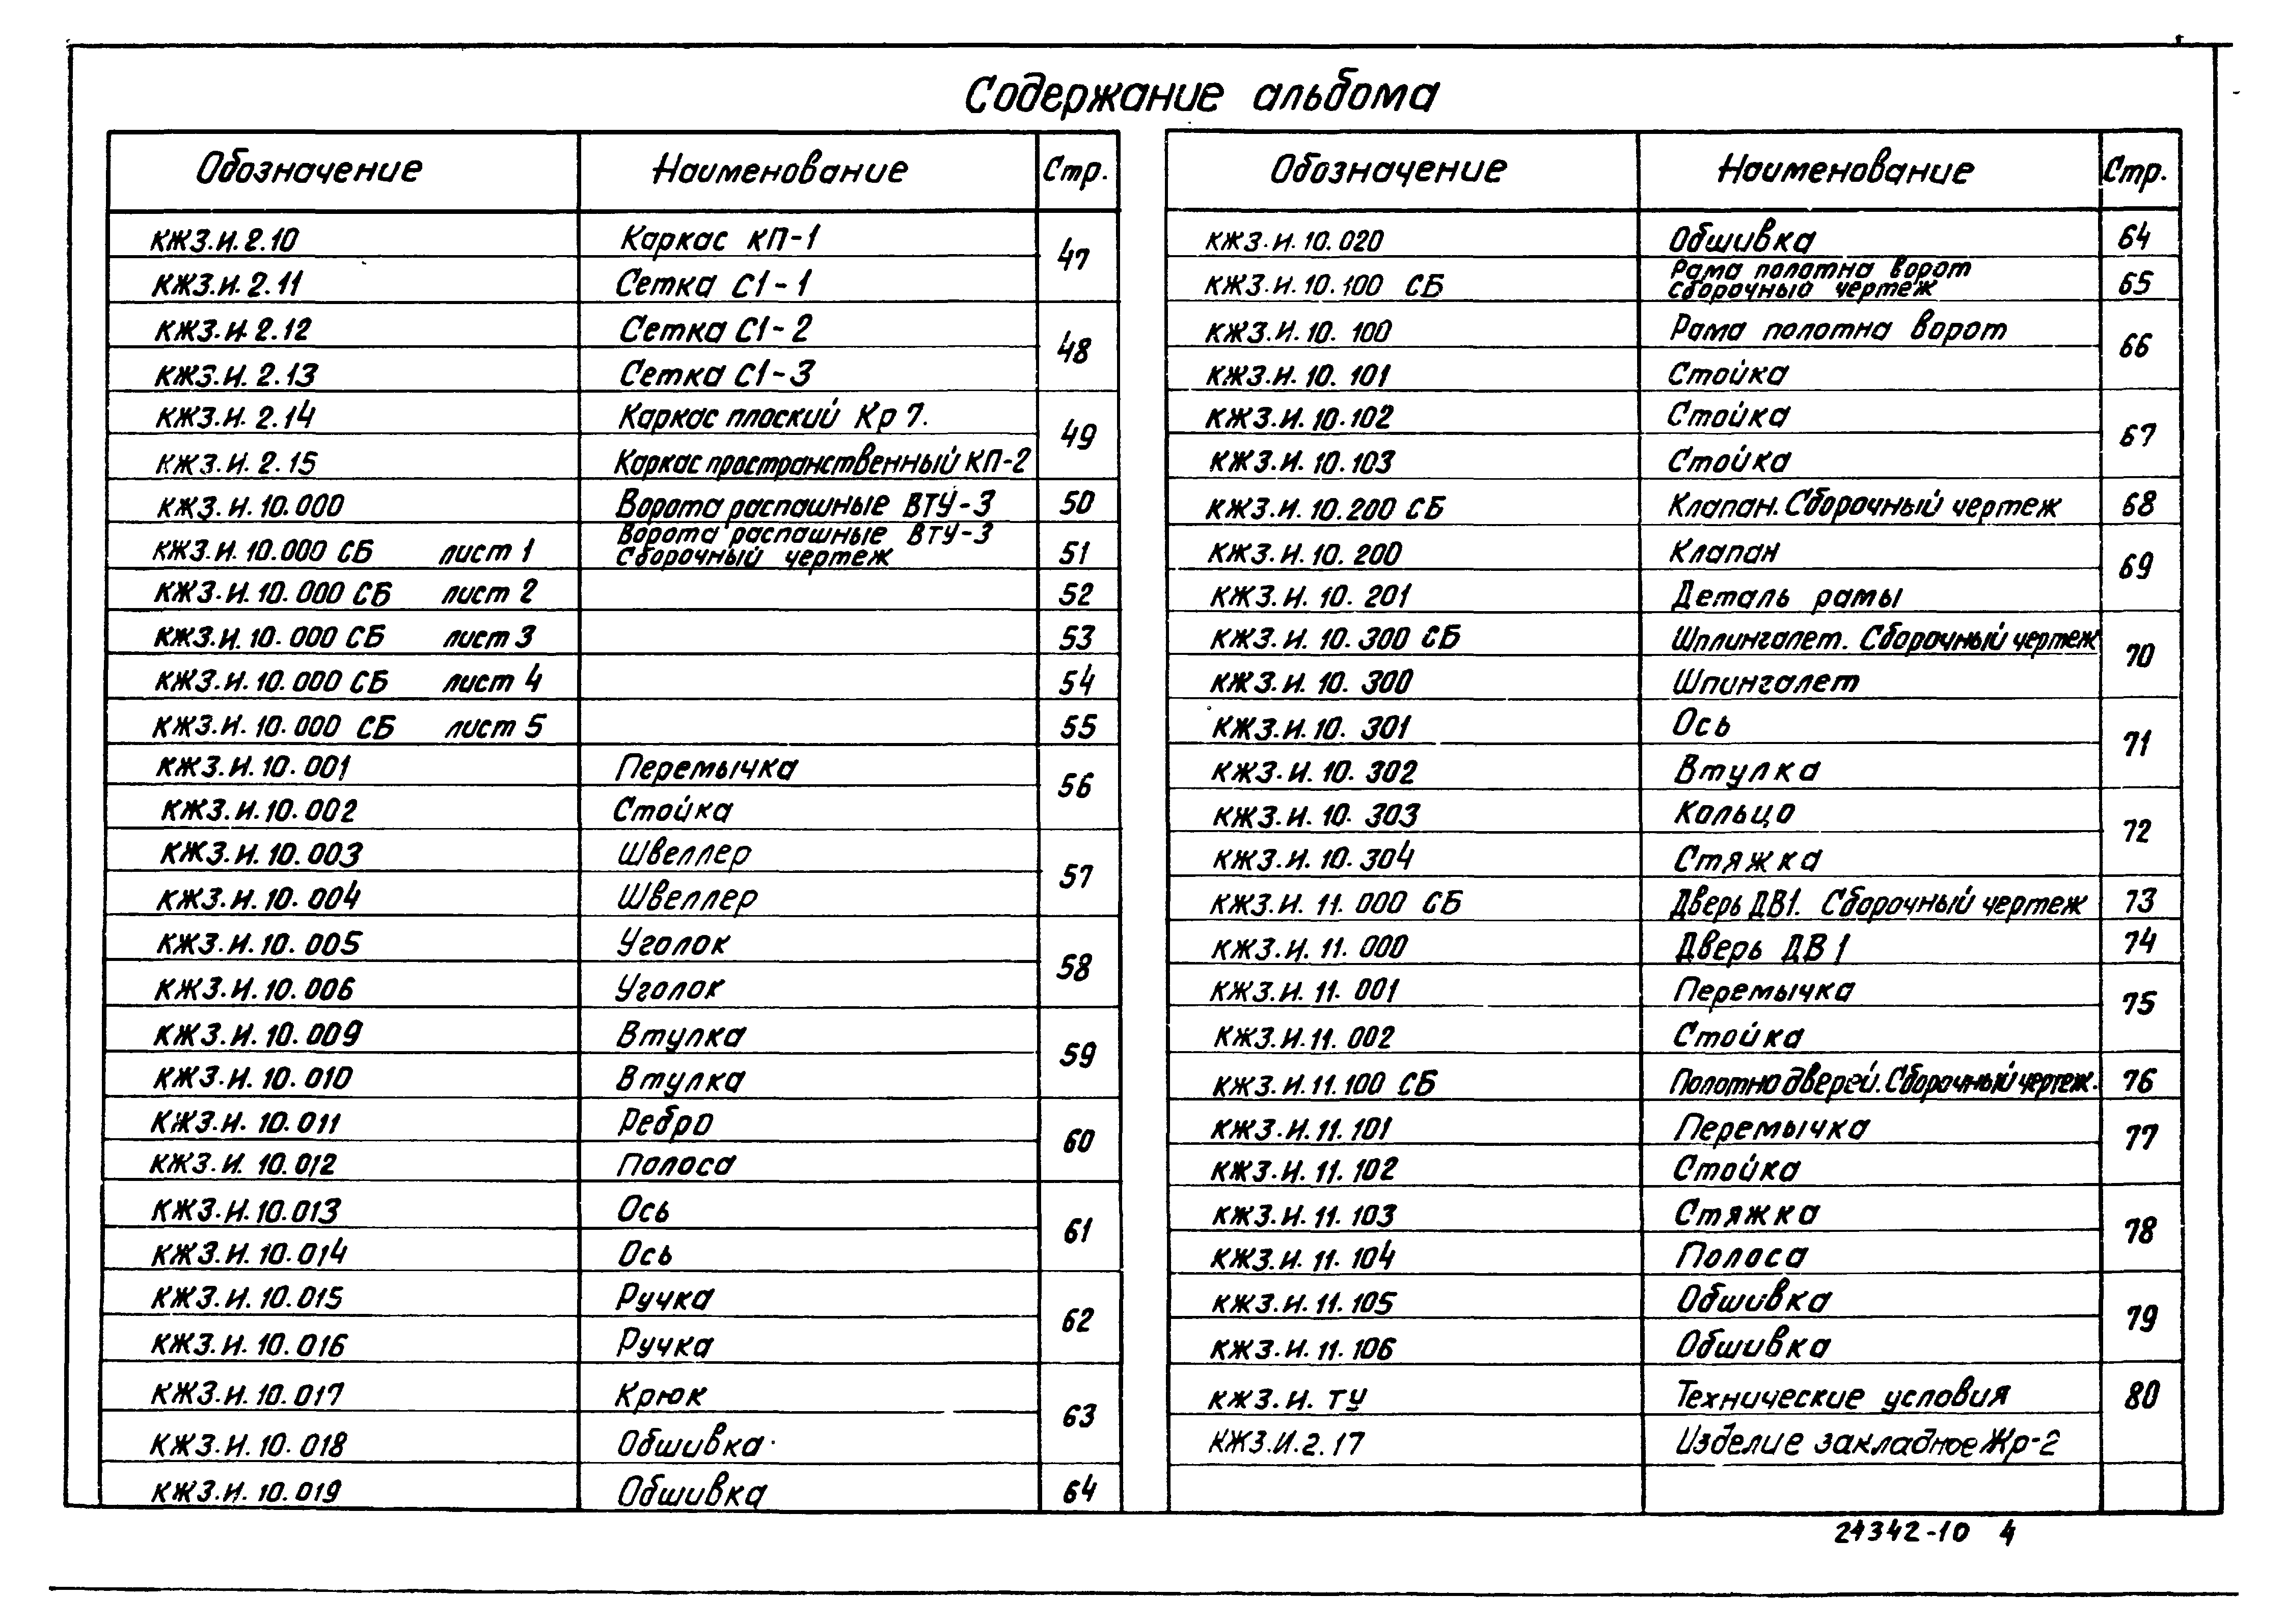 Содержание альбома
Обозначение Наименование Стр.
КЖЗ.И.2.10 Каркас КП-1 47
КЖЗ.И.2.11 Сетка С1-1
КЖЗ.И.2.12 Сетка С1-2 48
КЖЗ.И.2.13 Сетка С1-3
КЖЗ.И.2.14 Каркас плоский Кр 7. 49
КЖЗ.И.2.15 Каркас пространственный КП-2
КЖЗ.И.10.000 Ворота распашные ВТУ-3 50
КЖЗ.И.10.000 СБ лист 1 Ворота распашные ВТУ-3 51
Сборочный чертеж
КЖЗ.И.10.000 СБ лист 2 52
КЖЗ.И.10.000 СБ лист 3 53
КЖЗ.И.10.000 СБ лист 4 54
КЖЗ.И.10.000 СБ лист 5 55
КЖЗ.И.10.001 Перемычка 56
КЖЗ.И.10.002 Стойка
КЖЗ.И.10.003 Швеллер 57
КЖЗ.И.10.004 Швеллер
КЖЗ.И.10.005 Уголок 58
КЖЗ.И.10.006 Уголок
КЖЗ.И.10.009 Втулка 59
КЖЗ.И.10.010 Втулка
КЖЗ.И.10.011 Ребро 60
КЖЗ.И.10.012 Полоса
КЖЗ.И.10.013 Ось 61
КЖЗ.И.10.014 Ось
КЖЗ.И.10.015 Ручка 62
КЖЗ.И.10.016 Ручка
КЖЗ.И.10.017 Крюк 63
КЖЗ.И.10.018 Обшивка
КЖЗ.И.10.019 Обшивка 64
Обозначение Наименование Стр.
КЖЗ.И.10.020 Обшивка 64
КЖЗ.И.10.100 СБ Рама полотна ворот 65
Сборочный чертеж
КЖЗ.И.10.100 Рама полотна ворот 66
КЖЗ.И.10.101 Стойка
КЖЗ.И.10.102 Стойка 67
КЖЗ.И.10.103 Стойка
КЖЗ.И.10.200 СБ Клапан. Сборочный чертеж 68
КЖЗ.И.10.200 Клапан 69
КЖЗ.И.10.201 Деталь рамы
КЖЗ.И.10.300 СБ Шплингалет. Сборочный чертеж 70
КЖЗ.И.10.300 Шпингалет
КЖЗ.И.10.301 Ось 71
КЖЗ.И.10.302 Втулка
КЖЗ.И.10.303 Кольцо 72
КЖЗ.И.10.304 Стяжка
КЖЗ.И.11.000 СБ Дверь ДВ1. Сборочный чертеж 73
КЖЗ.И.11.000 Дверь ДВ1 74
КЖЗ.И.11.001 Перемычка 75
КЖЗ.И.11.002 Стойка
КЖЗ.И.11.100 СБ Полотно дверей. Сборочный чертеж. 76
КЖЗ.И.11.101 Перемычка 77
КЖЗ.И.11.102 Стойка
КЖЗ.И.11.103 Стяжка 78
КЖЗ.И.11.104 Полоса
КЖЗ.И.11.105 Обшивка 79
КЖЗ.И.11.106 Обшивка
КЖЗ.И.ТУ Технические условия 80
КЖЗ.И.2.17 Изделие закладное Жр-2
24342-10 4